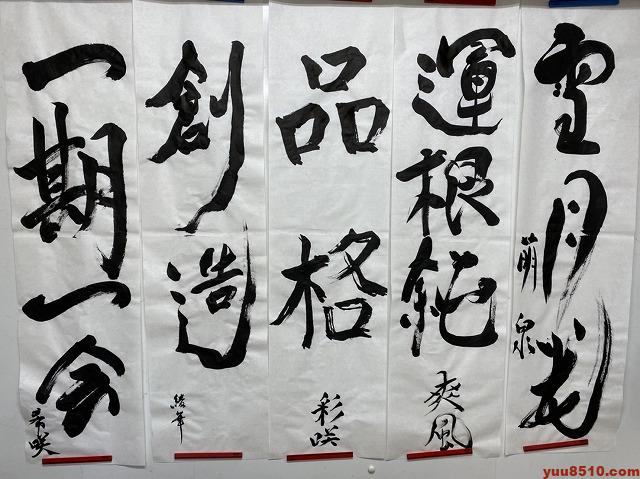 雪月花
萌泉
運根鈍
爽風
品格
彩咲
創造
一期一会
yuu8510.com